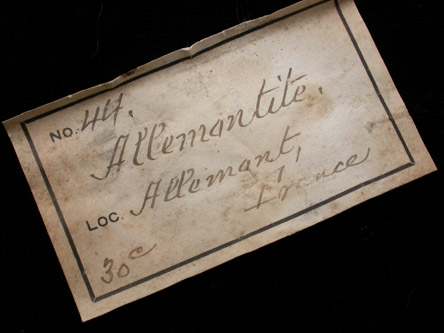 NO. 44.
Allemantite.
LOC. Allemant,
France
30c